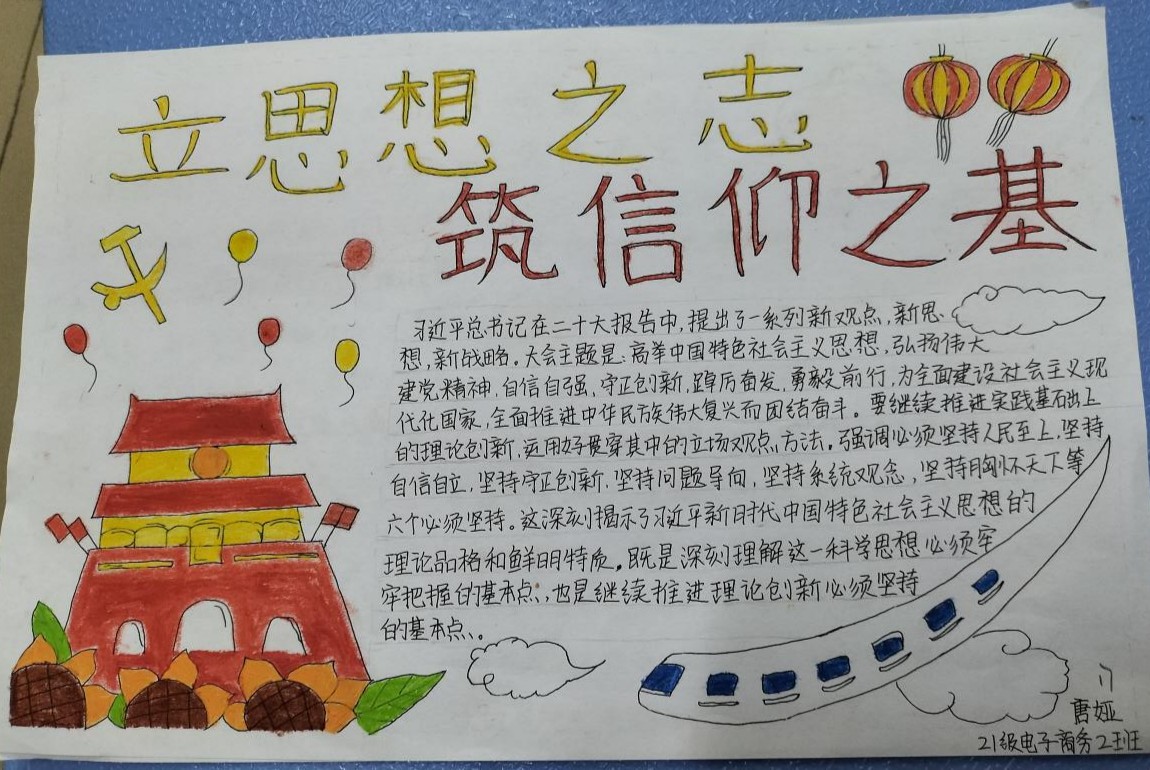 立思想之志
筑信仰之基
习近平总书记在二十大报告中，提出了一系列新观点，新思
想，新战略。大会主题是：高举中国特色社会主义思想，弘扬伟大
建党精神，自信自强、守正创新，踔厉奋发、勇毅前行，为全面建设社会主义现
代化国家，全面推进中华民族伟大复兴而团结奋斗。要继续推进实践基础上
的理论创新，运用好贯穿其中的立场观点方法。强调必须坚持人民至上，坚持
自信自立，坚持守正创新，坚持问题导向，坚持系统观念，坚持胸怀天下等
六个必须坚持。这深刻揭示了习近平新时代中国特色社会主义思想的
理论品格和鲜明特质。既是深刻理解这一科学思想必须牢
牢把握的基本点、也是继续推进理论创新必须坚持
的基本点、。
唐娅
21级电子商务2班